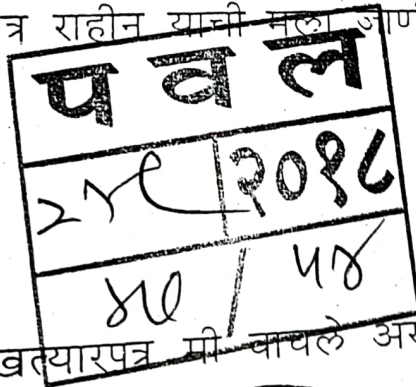 त्र राहीन याची मला जाणी
प व ल
२४८ २०१८
४७ / ५४
खत्यारपत्र मी वाचले अस